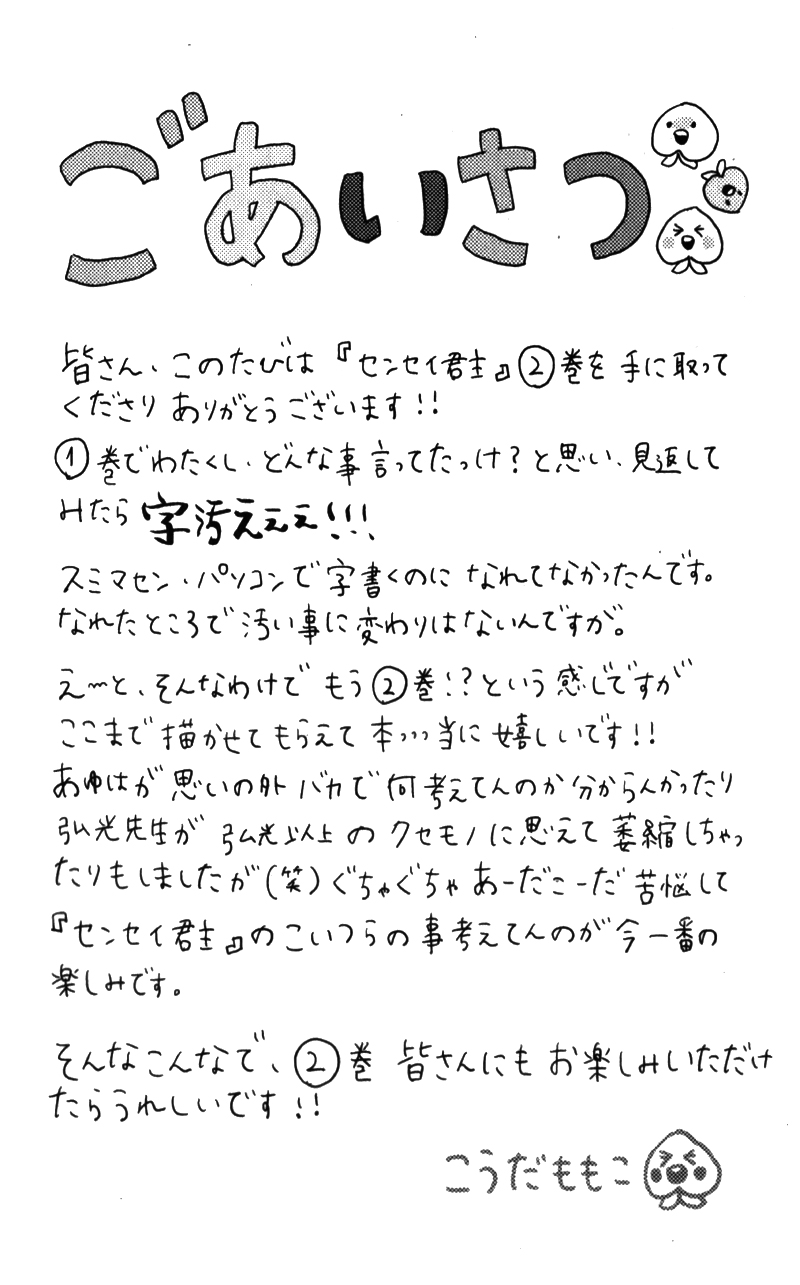 ごあいさつ
皆さん、このたびは『センセイ君主』②巻を手に取って
くださりありがとうございます!!
①巻でわたくし、どんな事言ってたっけ?と思い、見返して
みたら字汚えええ!!!
スミマセン、パソコンで字書くのになれてなかったんです。
なれたところで汚い事に変わりはないんですが。
え〜と、そんなわけでもう②巻!?という感じですが
ここまで描かせてもらえて本っっっ当に嬉しいです!!
あゆはが思いの外バカで何考えてんのか分からんかったり
弘光先生が弘光以上のクセモノに思えて萎縮しちゃっ
たりもしましたが(笑)ぐちゃぐちゃあーだこーだ苦悩して
『センセイ君主』のこいつらの事考えてんのが今一番の
楽しみです。
そんなこんなで、②巻皆さんにもお楽しみいただけ
たらうれしいです!!
こうだももこ